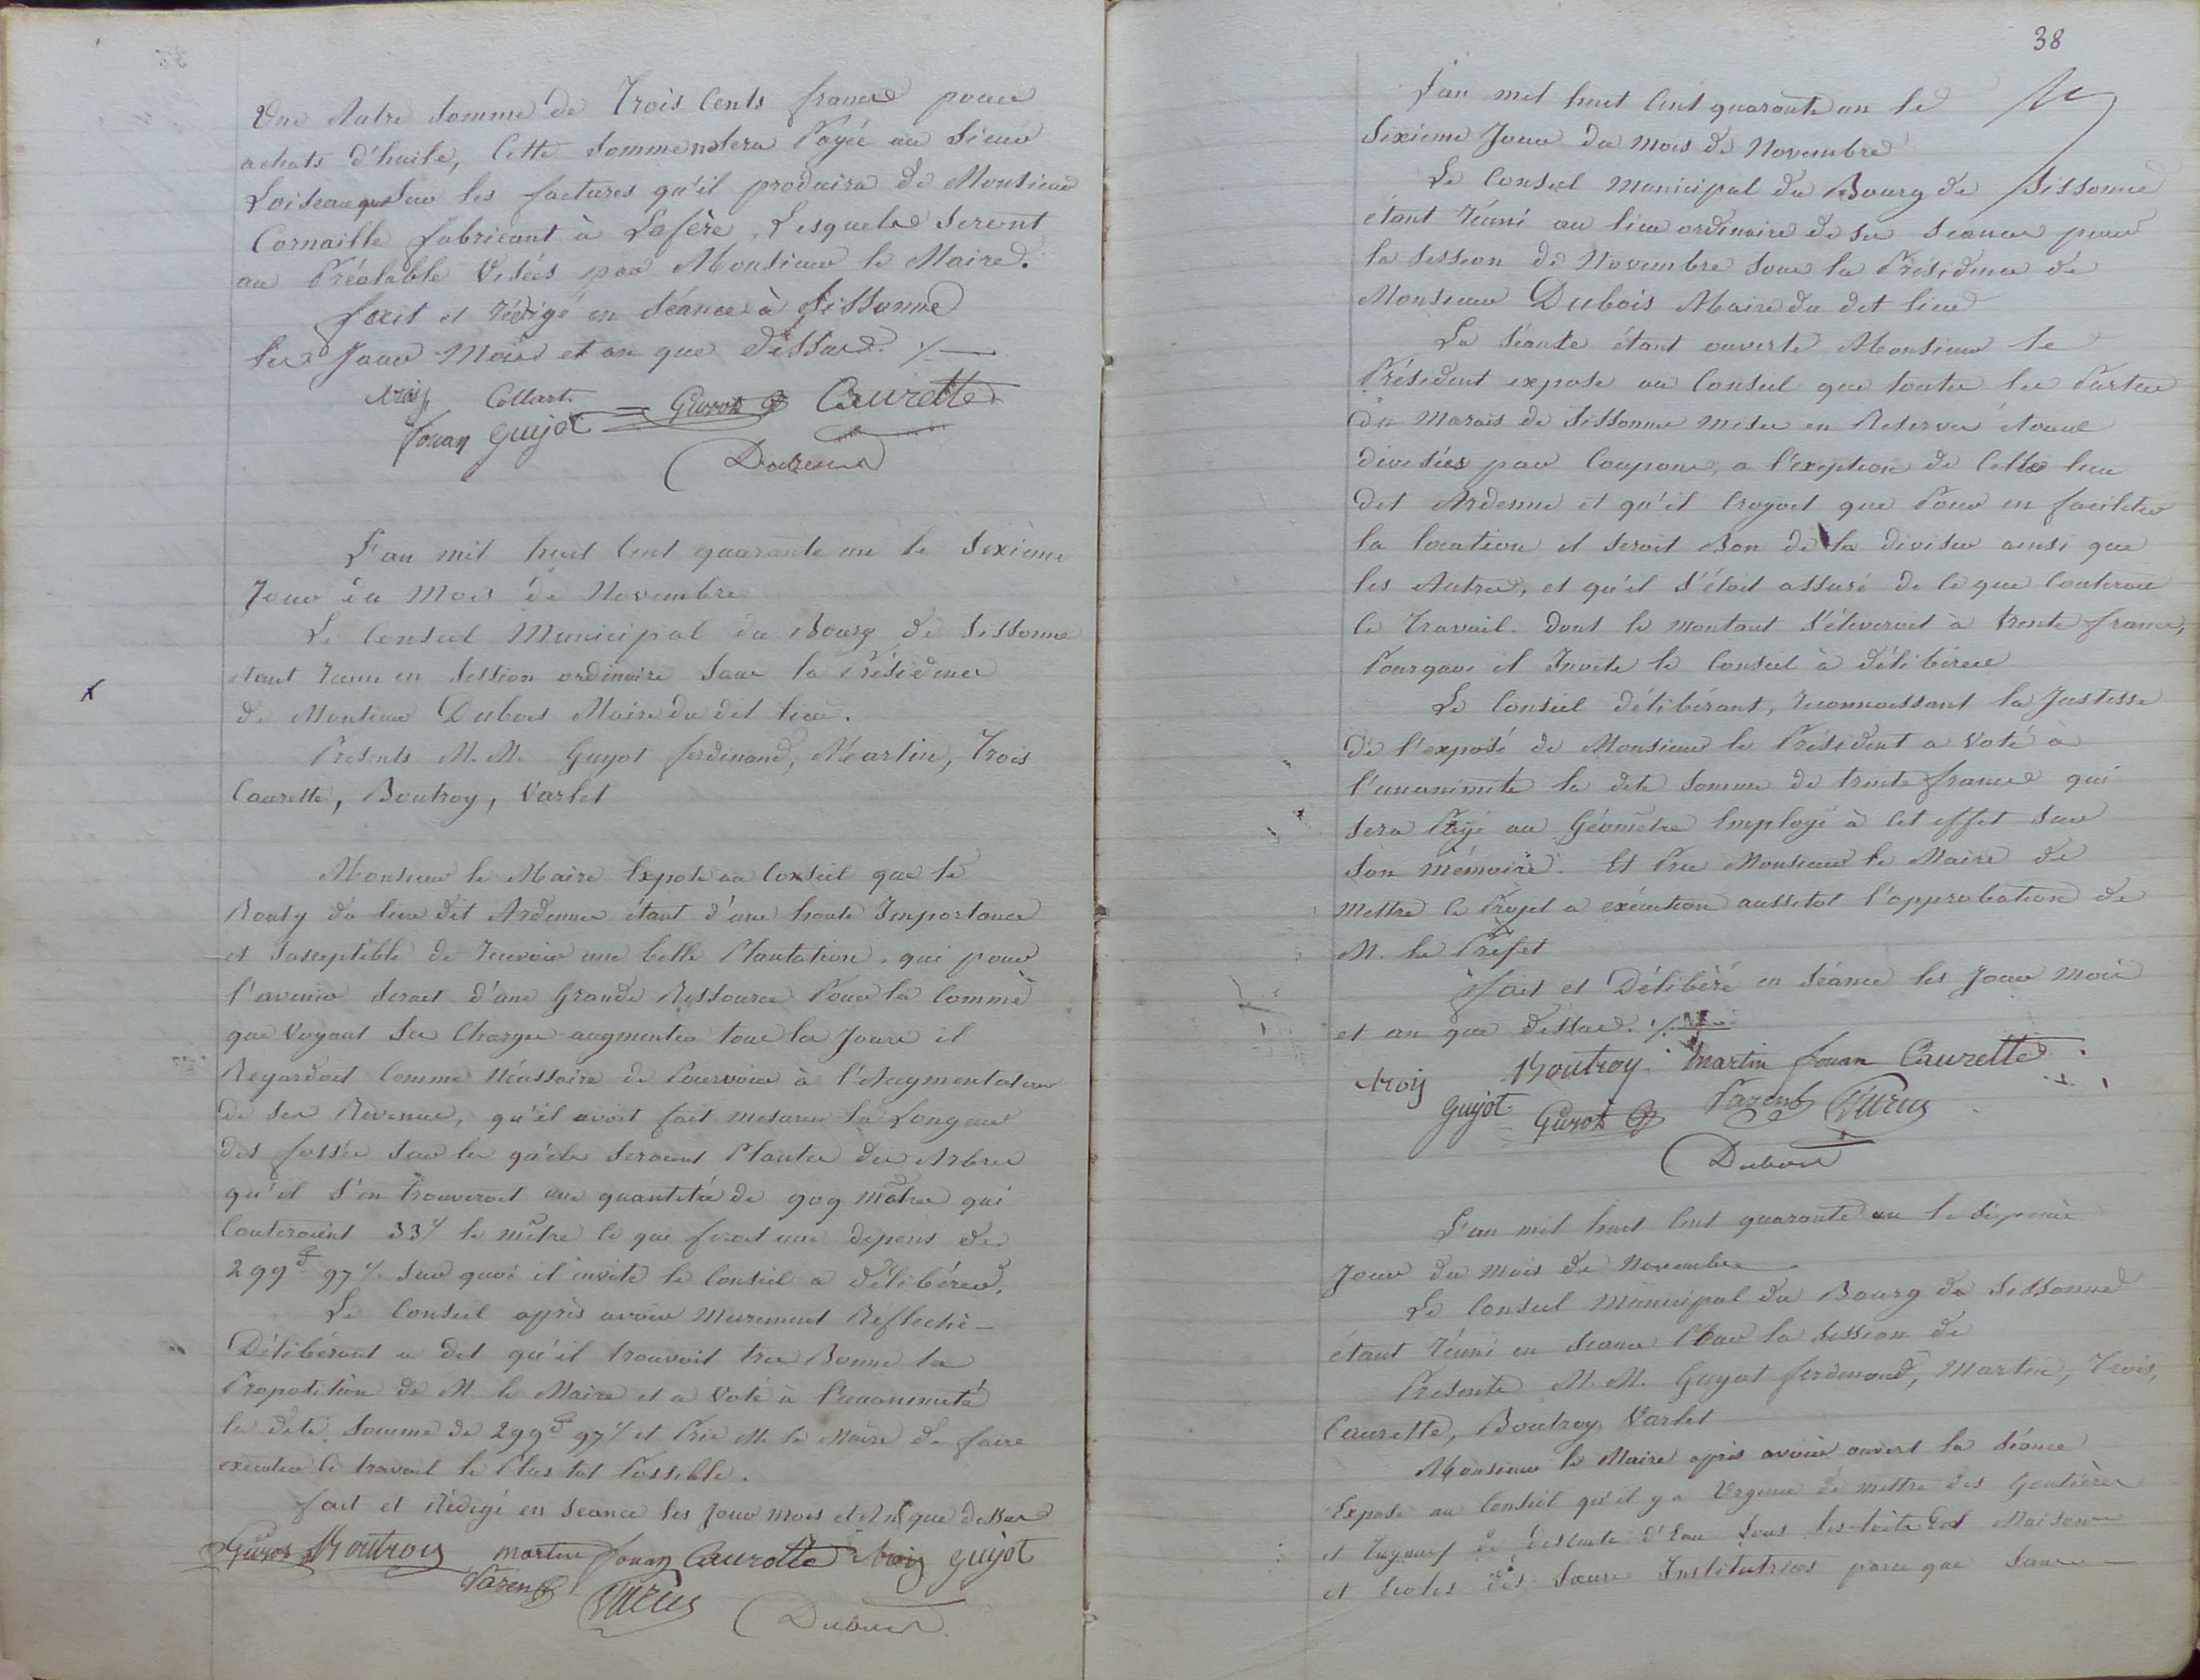 Une Autre Somme de Trois Cents francs pour
achats d'huile, Cette Somme sera Payée au Sieur
Loiseau Sur les factures qu'il produira de Monsieur
Cornaille fabricant à Lafère, Lesquels Seront
au Préalable Visées par Monsieur le Maire.
fait et rédigé en Séance à Sissonne
les Jour Mois et an que dessus.
trois Collart Guyot Caurette
Jouan Guyot
Dubois
L'an mil huit Cent quarante un le Sixième
Jour du Mois de Novembre
Le Conseil Municipal du Bourg de Sissonne
etant réuni en Session ordinaire Sous la Présidence
de Monsieur Dubois Maire du dit lieu.
Presents M.M. Guyot ferdinand, Martin, Trois
Caurette, Boutroy, Varlet
Monsieur le Maire Expose au Conseil que le
du lieu dit Ardenne étant d'une haute Importance
et Susceptible de recevoir une belle Plantation, qui pour
l'avenir Serait d'une Grande Ressource Pour la Comme
que Voyant Ses Charges augmenter tous les Jours il
Regardoit Comme Nécessaire de Pourvoir à l'Augmentation
de Ses Revenus, qu'il avoit fait mesurer la Longeur
des fossés Sur les quels Seroient Plantés des Arbres
qu'il S'en trouveroit une quantitée de 909 mètres qui
Couteroient 33 le mètre Ce qui feroit une depens de
299 97 Sur quoi il invite le Conseil a délibérer.
Le Conseil après avoir Murement Reflechi
Délibérant a dit qu'il trouvoit tres Bonne la
Proposition de M. le Maire et a Voté à l'unanimité
la dite Somme de 299 97 et Prie M. le Maire de faire
executer Ce travail le Plus tot Possible.
fait et Rédigé en Seance les Jour mois et An que dessus
Guyot Boutroy martin Jouan Caurette trois guyot
Parent
Dubois
38
L'an mil huit Cent quarante un le
Sixieme Jour du Mois de Novembre
Le Conseil Municipal du Bourg de Sissonne
étant réuni au lieu ordinaire de Ses Seances pour
la Session de Novembre Sous la Présidence de
Monsieur Dubois Maire du dit lieu
La Séance étant ouverte Monsieur le
Président expose au Conseil que toutes les Parties
du Marais de Sissonne mises en Reserve étoient
divisées par Coupons, a l'exeption de Celle lieu
dit Ardenne et qu'il Croyoit que Pour en faciliter
la location il Seroit Bon de la diviser ainsi que
les Autres, et qu'il S'étoit assuré de Ce que Couterait
Ce Travail. Dont le montant S'éleveroit à trente francs,
Pourquoi il Invite le Conseil à délibérer
Le Conseil délibérant, reconnoissant la Justesse
de l'exposé de Monsieur le Président a Voté à
l'unanimité la dite Somme de trente francs qui
Sera Payé au Géomètre Employé à Cet effet Sur
Son mémoire. Et Prie Monsieur le Maire de
Mettre Ce Projet a exécution aussitot l'approbation de
M. le Préfet
fait et Délibéré en Séance les Jour Mois
et an que dessus.
trois Boutroy martin Jouan Caurette
guyot Guyot Parent
Dubois
L'an mil huit Cent quarante un le
Jour du Mois de Novembre
Le Conseil Municipal du Bourg de Sissonne
étant réuni en Seance Pour la Session de
Presents M.M. Guyot ferdinand, Martin, Trois,
Caurette, Boutroy, Varlet
Monsieur le Maire après avoir ouvert la Séance
Expose au Conseil qu'il y a Urgence de mettre des Goutières
et Tuyaux de descente d'Eau Sous les toits des Maisons
et Ecoles des Soeurs Institutrices parce que Sans